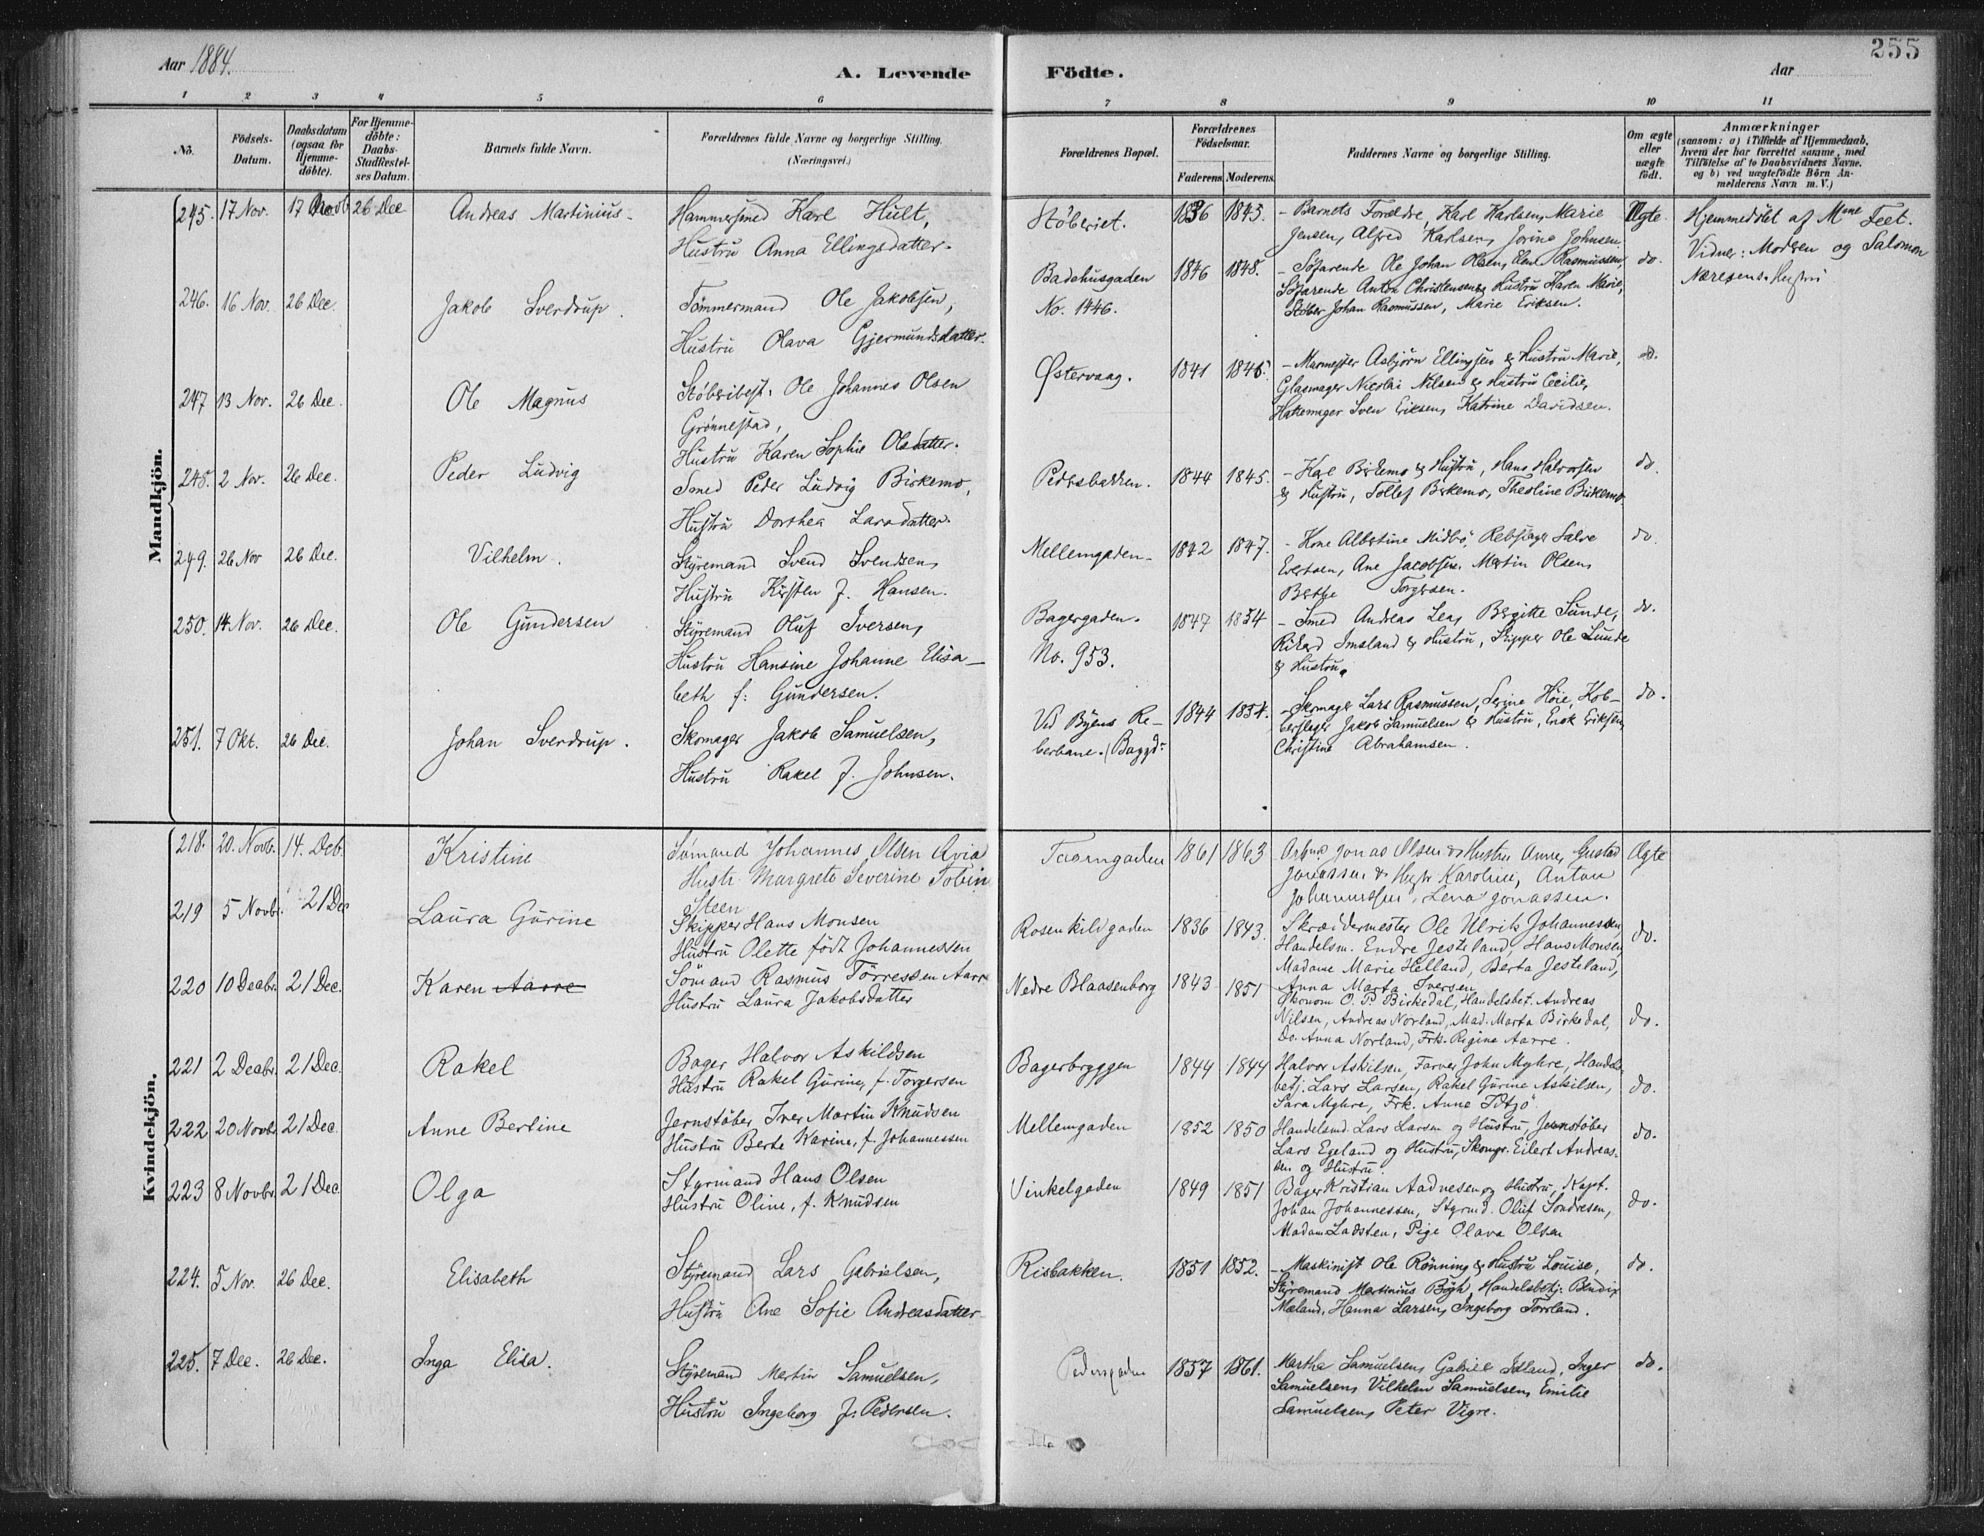 255
Aar 1884.
A. Levende Födte.
Aar
1 2 3 4 5 6 7 8 9 10 11
No.
Födsels-Datum.
Daabsdatum (ogsaa for Hjemme-döbte).
For Hjemme-döbte: Daabs-Stadfæstel-ses Datum.
Barnets fulde Navn.
Forældrenes fulde Navne og borgerlige Stilling.
(Næringsvei.)
Forældrenes Bopæl.
Forældrenes Födselsaar.
Faderens. Moderens.
Faddernes Navne og borgerlige Stilling.
Om ægte eller uægte födt.
Anmærkninger
(saasom: a) i Tilfælde af Hjemmedaab,
hvem der har forrettet samme, med
Tilföielse af to Daabsvidners Navne.
og b) ved uægtefödte Börn An-
melderens Navn m. V.)
Mandkjön.
245. 17 Nov. 17 Novb 26 Dec Andreas Martinius
Hammersmed Karl Hult,
Hustru Anna Ellingsdatter.
Støberiet. 1836 1845.
Barnets Forældre, Karl Karlsen, Marie
Jensen, Alfred Karlsen, Jorine Johnsen.
Ægte
Hjemmedøbt af Mme Feet.
Vidner: Moderen og Salomon
Næresens Hustru
246. 16 Nov. 26 Dec. Jakob Sverdrup.
Tømmermand Ole Jakobsen,
Hustru Olava Gjermundsdatter.
Badehusgaden
No. 1446.
1846 1848.
Søfarende Ole Johan Olsen, Elen Rasmussen,
Søfarende Anton Christensen & Hustru Karen Marie,
Støber Johan Rasmussen, Marie Eriksen.
do.
247 13 Nov. 26 Dec. Ole Magnus
Støberibest. Ole Johannes Olsen
Grønnestad,
Hustru Karen Sophie Olsdatter.
Østervaag. 1841 1846.
Murmester Asbjørn Ellingsen & Hustru Marie,
Glasmager Nicolai Nilsen & Hustru Cecilie,
Hattemager Sven Eriksen, Katrine Davidsen.
do.
248. 2 Nov. 26 Dec. Peder Ludvig
Smed Peder Ludvig Birkemo,
Hustru Dorthea Larsdatter.
Pedersbakken. 1844 1845.
Karl Birkemo & Hustru, Hans Halvorsen
& Hustru, Tollef Birkemo, Theoline Birkemo
do.
249. 26 Nov 26 Dec. Vilhelm.
Styremand Svend Svendsen,
Hustru Kirsten f. Hansen.
Mellemgaden 1842 1847.
Kone Albertine Midbø, Rebslager Salve
Evertsen, Ane Jacobsen, Martin Olsen,
Berthe Torgersen.
do.
250. 14 Nov. 26 Dec. Ole Gundersen
Styremand Oluf Iversen,
Hustru Hansine Johanne Elisa-
beth f: Gundersen.
Bagergaden.
No. 953.
1847 1854
Smed Andreas Lea, Bergitte Sunde,
Rikard Imsland & Hustru, Skipper Ole Sunde
& Hustru.
do.
251. 7 Okt. 26 Dec. Johan Sverdrup.
Skomager Jakob Samuelsen,
Hustru Rakel f. Johnsen.
Ved Byens Re-
berbane.
1844 1854.
Skomager Lars Rasmussen, Serine Høie, Kob-
berslager Jakob Samuelsen & Hustru, Enok Eriksen,
Christine Abrahamsen.
do.
Kvindekjön.
218. 20. Novb. 14. Deb. Kristine
Sømand Johannes Olsen
Hustr. Margrete Severine Tobine
Steen
Taarngaden 1861 1863
Arbm. Jonas Olsen & Hustru Anne, Gustad
Jonassen & Hustr Karoline, Anton
Johannessen, Lena Jonassen.
Ægte
219 5 Novbr. 21 Dec Laura Gurine
Skipper Hans Monsen
Hustru Olette født Johannessen
Rosenkildgaden 1836 1843.
Skræddermester Ole Ulrik Johannessen,
Handelsm. Endre Jesteland, Hans Monsen
Madame Marie Helland, Berta Jesteland,
Anna Marta Iversen
do.
220 10 Decbr. 21 Dec. Karen Aarre
Sømand Rasmus Tørressen Aarre
Hustru Laura Jakobsdatter
Nedre Blaasenborg 1843 1851
Økonom O. P. Birkedal, Handelsbet. Andreas
Nilsen, Andreas Norland, Mad. Marta Birkedal,
Do. Anna Norland, Frk. Regine Aarre.
do.
221 2 Decbr. 21 Dec. Rakel
Bager Halvor Askildsen
Hustru Rakel Gurine, f. Torgersen
Bagerbryggen 1844 1844
Halvor Askilsen, Farver John Myhre, Handels-
betj. Lars Larsen, Rakel Gurine Askilsen,
Sara Myhre, Frk. Anne
do.
222 20 Novbr. 21 Dec. Anne Bertine
Jernstøber Iver Martin Knudsen
Hustru Berte Karine, f. Johannessen
Mellemgaden 1852 1850
Handelsmd. Lars Larsen og Hustru, Jernstøber
Lars Egeland og Hustru, Skomgr. Eilert Andreas-
sen og Hustru.
do.
223 8 Novbr. 21 Dec. Olga
Styrmand Hans Olsen
Hustru Oline, f. Knudsen
Vinkelgaden 1849 1851
Bager Kristian Aadnesen og Hustru, Kapt.
Johan Johannessen, Styrmd. Oluf Sondresen,
Madam Ladsten, Pige Olava Olsen
do.
224. 5 Nov. 26 Dec. Elisabeth
Styremand Lars Gabrielsen,
Hustru Ane Sofie Andreasdatter
Risbakken. 1851 1852.
Maskinist Ole Rønning & Hustru Louise,
Styremand Martinius Bøgh, Handelsbetj: Bendix
Mæland, Hanna Larsen, Ingeborg Torrland.
do.
225. 7 Dec. 26 Dec. Inga Elisa.
Styremand Martin Samuelsen,
Hustru Ingeborg f: Pedersen.
Pedersgaden 1857 1861.
Martha Samuelsen, Gabriel Idland, Inger
Samuelsen, Vilhelm Samuelsen, Emilie
Samuelsen, Peter Vigre.
do.